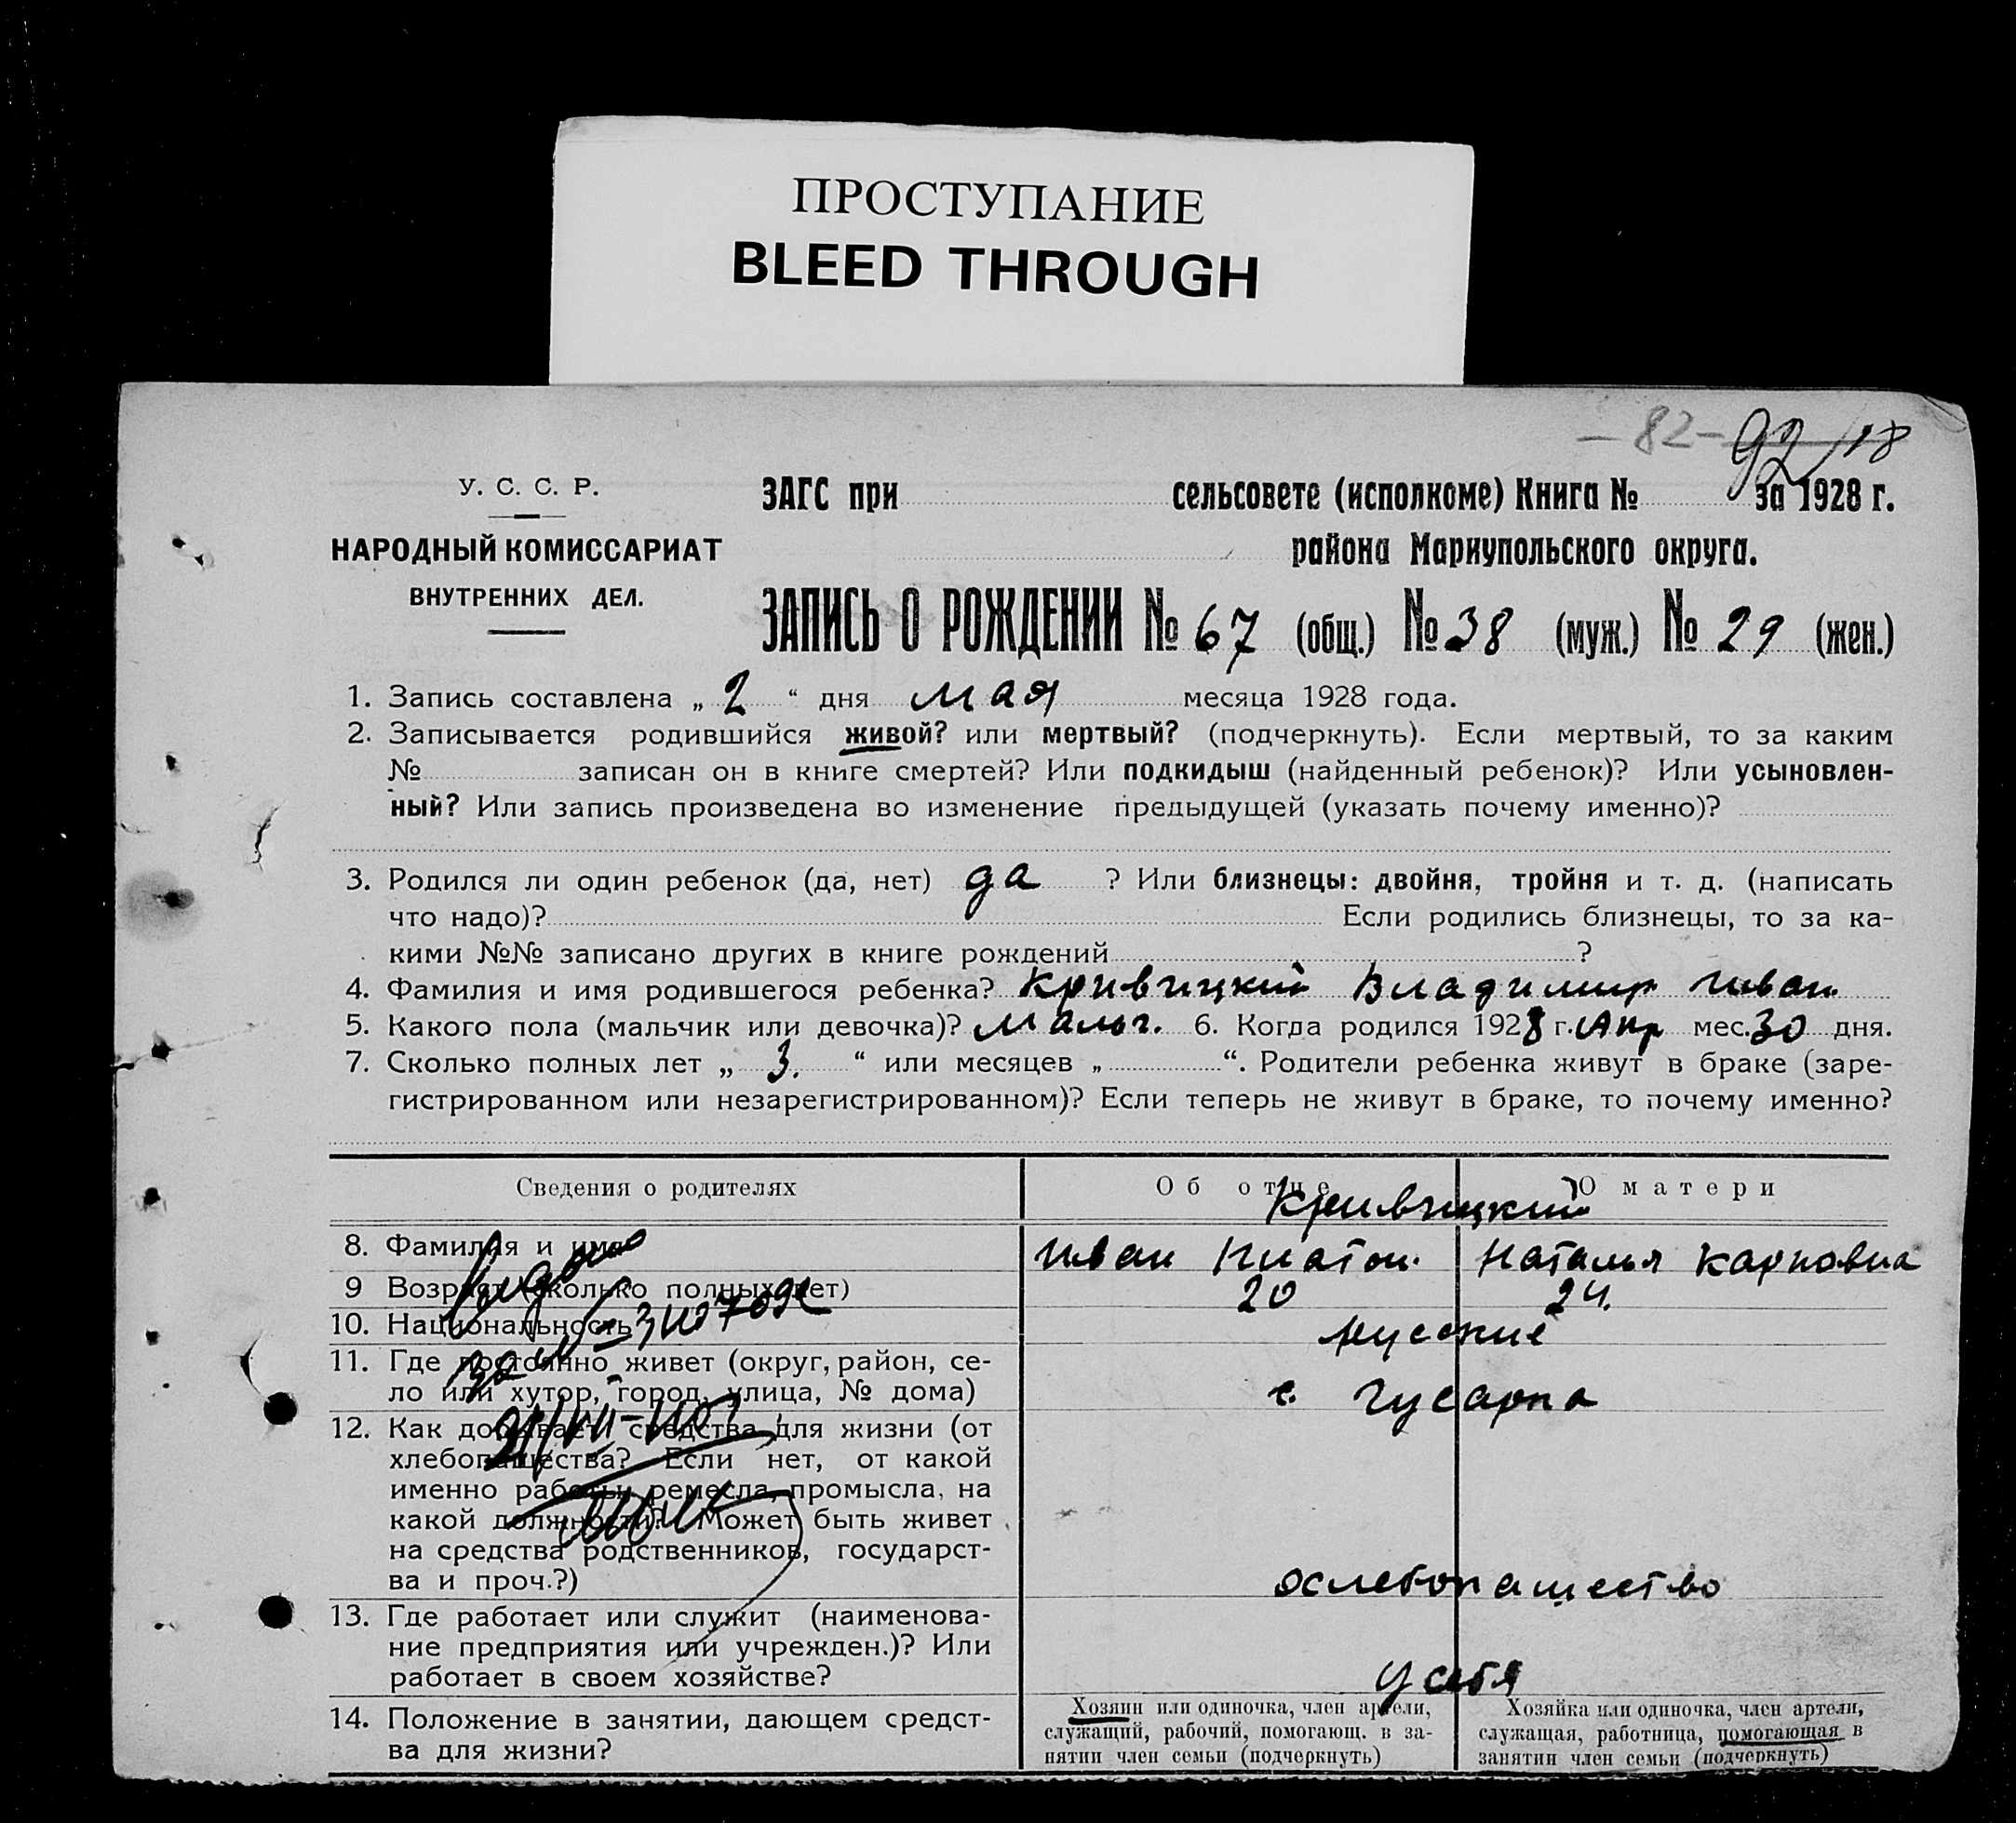 ПРОСТУПАНИЕ
BLEED THROUGH
– 82 – 92/18
У. С. С. Р.
НАРОДНЫЙ КОМИССАРИАТ
ВНУТРЕННИХ ДЕЛ.
ЗАГС при сельсовете (исполкоме) Книга № за 1928 г.
района Мариупольского округа.
ЗАПИСЬ О РОЖДЕНИИ № 67 (общ.) № 38 (муж.) № 29 (жен.)
1. Запись составлена „ 2 “ дня мая месяца 1928 года.
2. Записывается родившийся живой? или мертвый? (подчеркнуть). Если мертвый, то за каким
№ записан он в книге смертей? Или подкидыш (найденный ребенок)? Или усыновлен-
ный? Или запись произведена во изменение предыдущей (указать почему именно)?
3. Родился ли один ребенок (да, нет) да ? Или близнецы: двойня, тройня и т. д. (написать
что надо)? Если родились близнецы, то за ка-
кими №№ записано других в книге рождений ?
4. Фамилия и имя родившегося ребенка? Кривицкий Владимир Иван.
5. Какого пола (мальчик или девочка)? Мальч. 6. Когда родился 1928 г. Апр мес. 30 дня.
7. Сколько полных лет „ 3. “ или месяцев „ “. Родители ребенка живут в браке (заре-
гистрированном или незарегистрированном)? Если теперь не живут в браке, то почему именно?
Сведения о родителях Об отце О матери
Кривицкий
8. Фамилия и имя Иван Наталья Карповна
9 Возраст (сколько полных лет) 20 24.
10. Национальность русские
11. Где постоянно живет (округ, район, се-
ло или хутор, город, улица, № дома) с.
12. Как добывает средства для жизни (от
хлебопашества? Если нет, от какой
именно работы, ремесла, промысла, на
какой должности? Может быть живет
на средства родственников, государст-
ва и проч.?) хлебопашество
13. Где работает или служит (наименова-
ние предприятия или учрежден.)? Или
работает в своем хозяйстве? у себя
14. Положение в занятии, дающем средст-
ва для жизни?
Хозяин или одиночка, член артели,
служащий, рабочий, помогающ. в за-
нятии член семьи (подчеркнуть)
Хозяйка или одиночка, член артели,
служащая, работница, помогающая в
занятии член семьи (подчеркнуть)